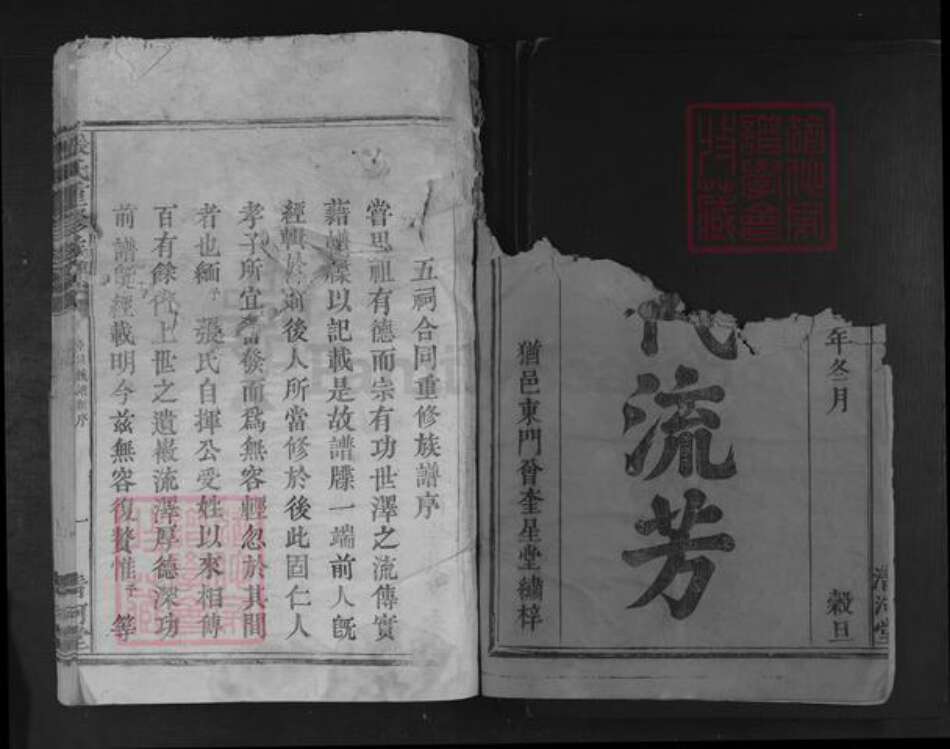 年冬月
穀旦
代流芳
猶邑東門會奎星堂繡梓
五祠合同重修族譜序
嘗思祖有德而宗有功世澤之流傳實
藉譜牒以記載是故譜牒一端前人旣
經輯於前後人所當修於後此固仁人
孝子所宜奮發而爲無容輕忽於其間
者也緬予張氏自揮公受姓以來相傳
百有餘代上世之遺徽流澤厚德深功
前譜旣經載明今兹無容復贅惟予等
張氏重修族譜
一
清河堂
清河堂